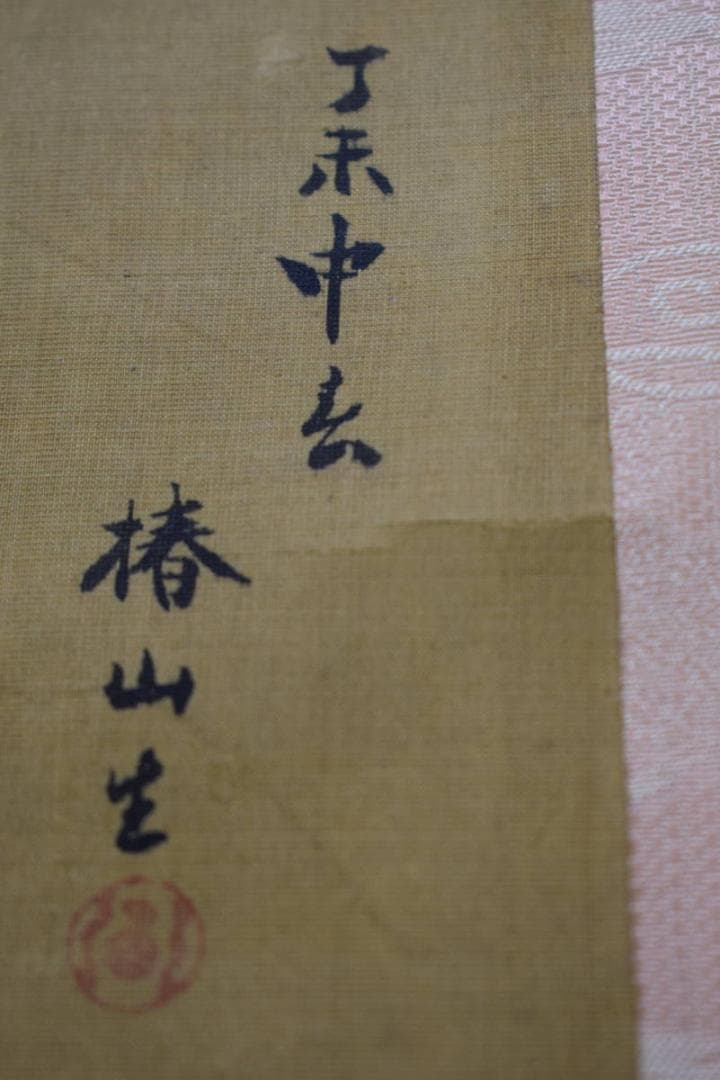 丁未中春
椿山生